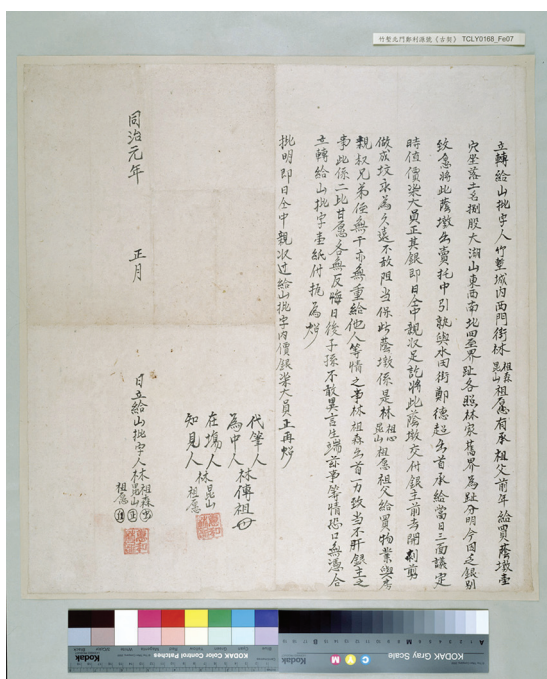 竹塹北門鄭利源號《古契》 TCLY0168_Fe07
立轉給山批字人竹塹城內西門街林祖森昆山祖愿有承祖父前年給買蔭墩壹
穴坐落土名捌股大湖山東西南北四至界趾各照林家舊界為趾分明今因乏銀別
致急將此蔭墩出賣托中引就與水田街鄭德超出首承給當日三面議定
時值價柒大員正其銀即日全中親收足訖將此蔭墩交付銀主前去開剪
做成坟永為久遠不敢阻当保此蔭墩係是林祖森昆山祖愿祖父給買物業與房
親叔兄弟侄無干亦無重給他人等情之事林祖森出首一力致当不干銀主之
事此係二比甘愿各無反悔日後子孫不敢異言生端茲事等情恐口無憑合
立轉給山批字壹紙付执為炤
批明即日仝中親收过給山批字內價銀柒大員正再炤
代筆人
為中人林傳祖
在場人林昆山
知見人祖愿
同治元年 正月 日立給山批字人林祖森昆山祖愿
Kodak Color Control Patches
KODAK Gray Scale
Kodak
C Y M